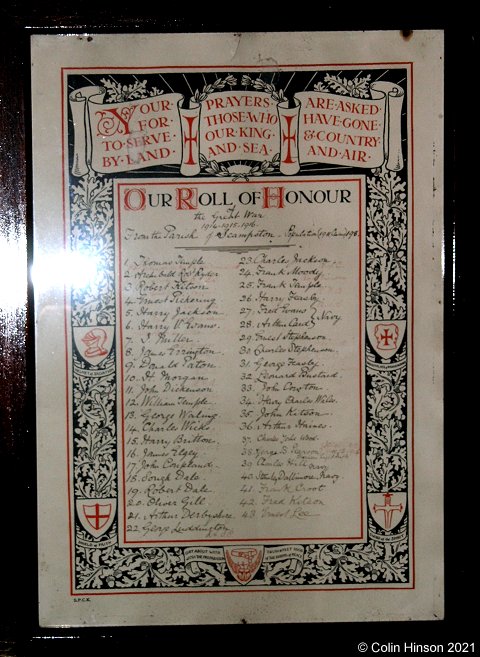 YOUR· PRAYERS· ARE·ASKED·
FOR· THOSE·WHO HAVE·GONE·
TO·SERVE· OUR·KING· &·COUNTRY·
BY·LAND· AND·SEA· AND·AIR·
OUR ROLL OF HONOUR
of
the Great War
1914-1915-1916.
From the Parish of Scampston.
1. Thomas Temple
3. Robert Kitson
4. Ernest Pickering
5. Harry Jackson
6. Harry Wm Evans
7. J. Miller
8. James Errington
9. Donald Eaton
10. H. Morgan
11. John Dickenson
12. William Temple
13. George Waling
14. Charles Wicks
15. Harry Britton
16. James Elgey
17. John Coupland
18. Dale
19. Robert Dale
20. Oliver Gilt
21. Arthur Derbyshire
22. George Luddington
23. Charles Jackson
24. Frank Moody
25. Frank Temple
26. Harry Fearby
27. Fred Evans
28. Arthur
Navy
29. Ernest Stephenson
30. Charles Stephenson
31. George Fearby
32. Leonard Bustard
33. John Coxton
34. Henry Charles Wiles
35. John Kitson
36. Arthur Haines
37. Charles John Wood
38. George D. Pearson
39. Charles Hill Navy
40. Stanley Dallimore. Navy
41. Frank Croot
42. Fred Kitson
43. Ernest Lee
SHIELD of FAITH
S.P.C.K.
© Colin Hinson 2021